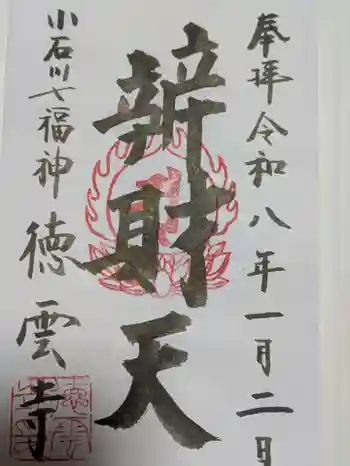 奉拝 令和八年一月二日
辨財天
小石川七福神
徳雲寺